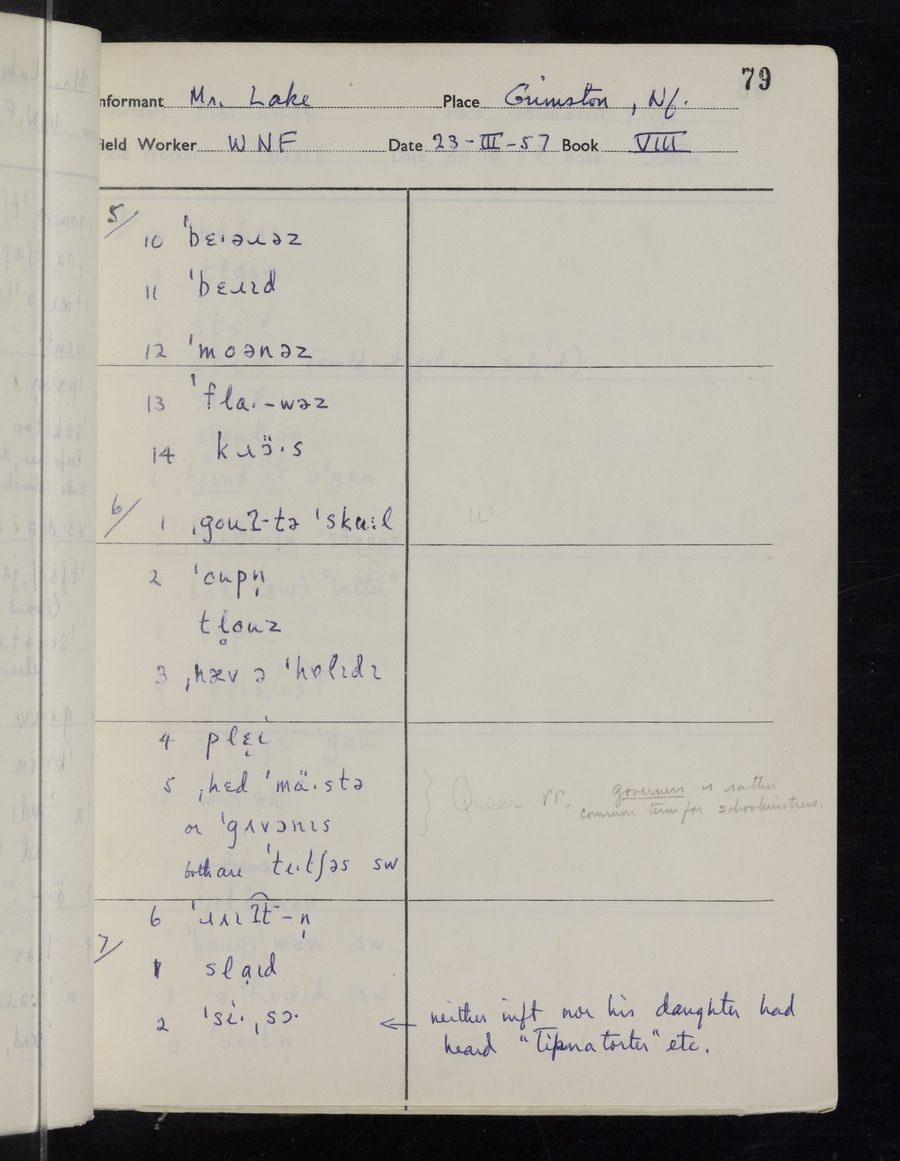 79
nformant Mr. Lake Place Grimston, Nf.
ield Worker WNF Date 23-III-57 Book VIII
5/
10 ˈbɛ·əɹəz
11 ˈbɛɹɪd
12 ˈmoənəz
13 ˈfla·-wəz
14 kɹɔ̈·s
6/ 1 ˌgouʔ-tə ˈskuːl
u:
2 ˈoupn̩
tl̥ouz
3 ˌhæv ə ˈhɒlɪdɪ
4 plɛ̝i
5 ˌhɛd ˈmä·stə
or ˈgʌvənɪs
both are ˈtɪ·tʃəs sw
} Queer rr. governess is rather
common term for schoolmistress.
6 ˈɹʌɪʔ͡t-n̩
7/
1 slaɪd
2 ˈsi·ˌsɔ·
← neither inft nor his daughter had
heard "Tipna torter" etc.